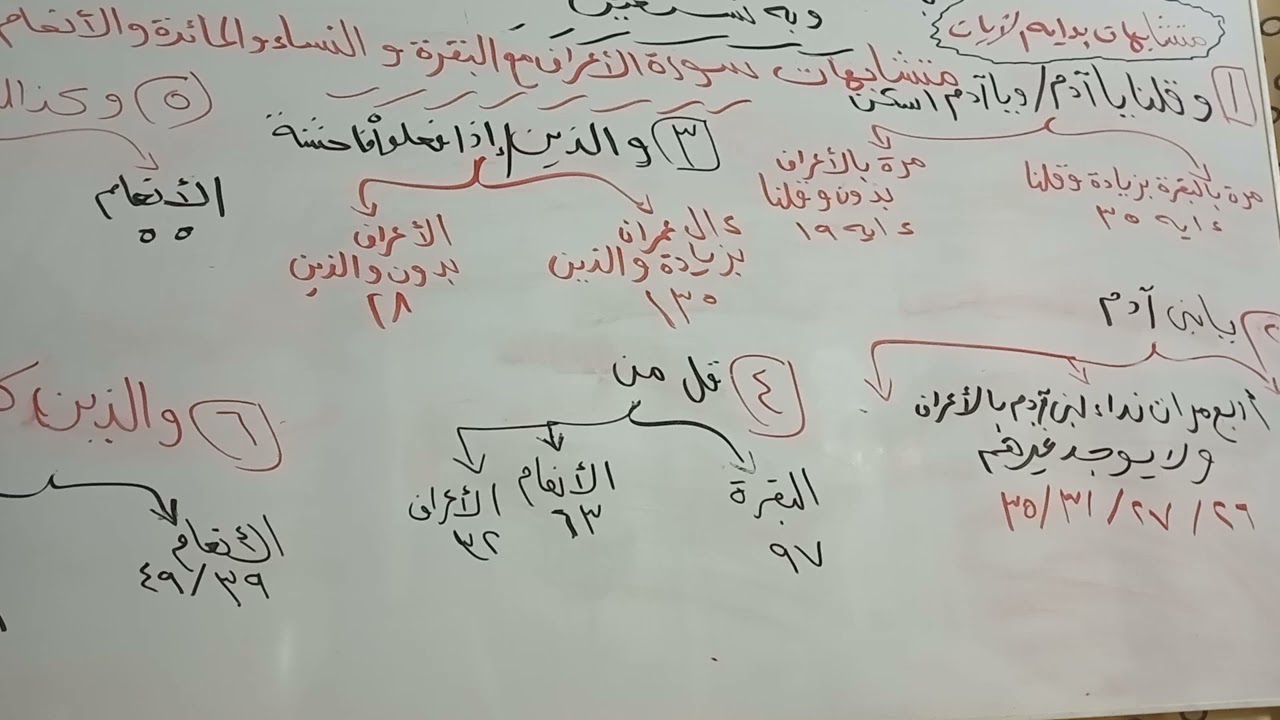 وبه نستعين
متشابهات بداية الآيات
متشابهات سورة الأعراف مع البقرة و النساء والمائدة والأنعام
١ وقلنا يا آدم / ويا آدم اسكن
مرة بالبقرة بزيادة وقلنا
ءاية ٣٥
مرة بالأعراف
بدون وقلنا
ءاية ١٩
٢ يا بنى آدم
أربع مرات نداء لبنى آدم بالأعراف
ولا يوجد غيرهم
٢٦ / ٢٧ / ٣١ / ٣٥
٣ والذين / إذا فعلوا فاحشة
ءال عمران
بزيادة والذين
١٣٥
الأعراف
بدون والذين
٢٨
٤ قل من
البقرة
٩٧
الأنعام
٦٣
الأعراف
٣٢
٥ وكذال
الأنعام
٥٥
٦ والذين ك
الأنعام
٣٩ / ٤٩